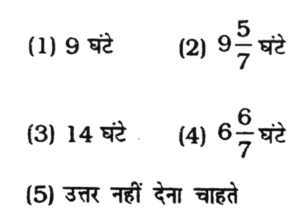 (1) 9 घंटे (2) 9 5/7 घंटे
(3) 14 घंटे (4) 6 6/7 घंटे
(5) उत्तर नहीं देना चाहते